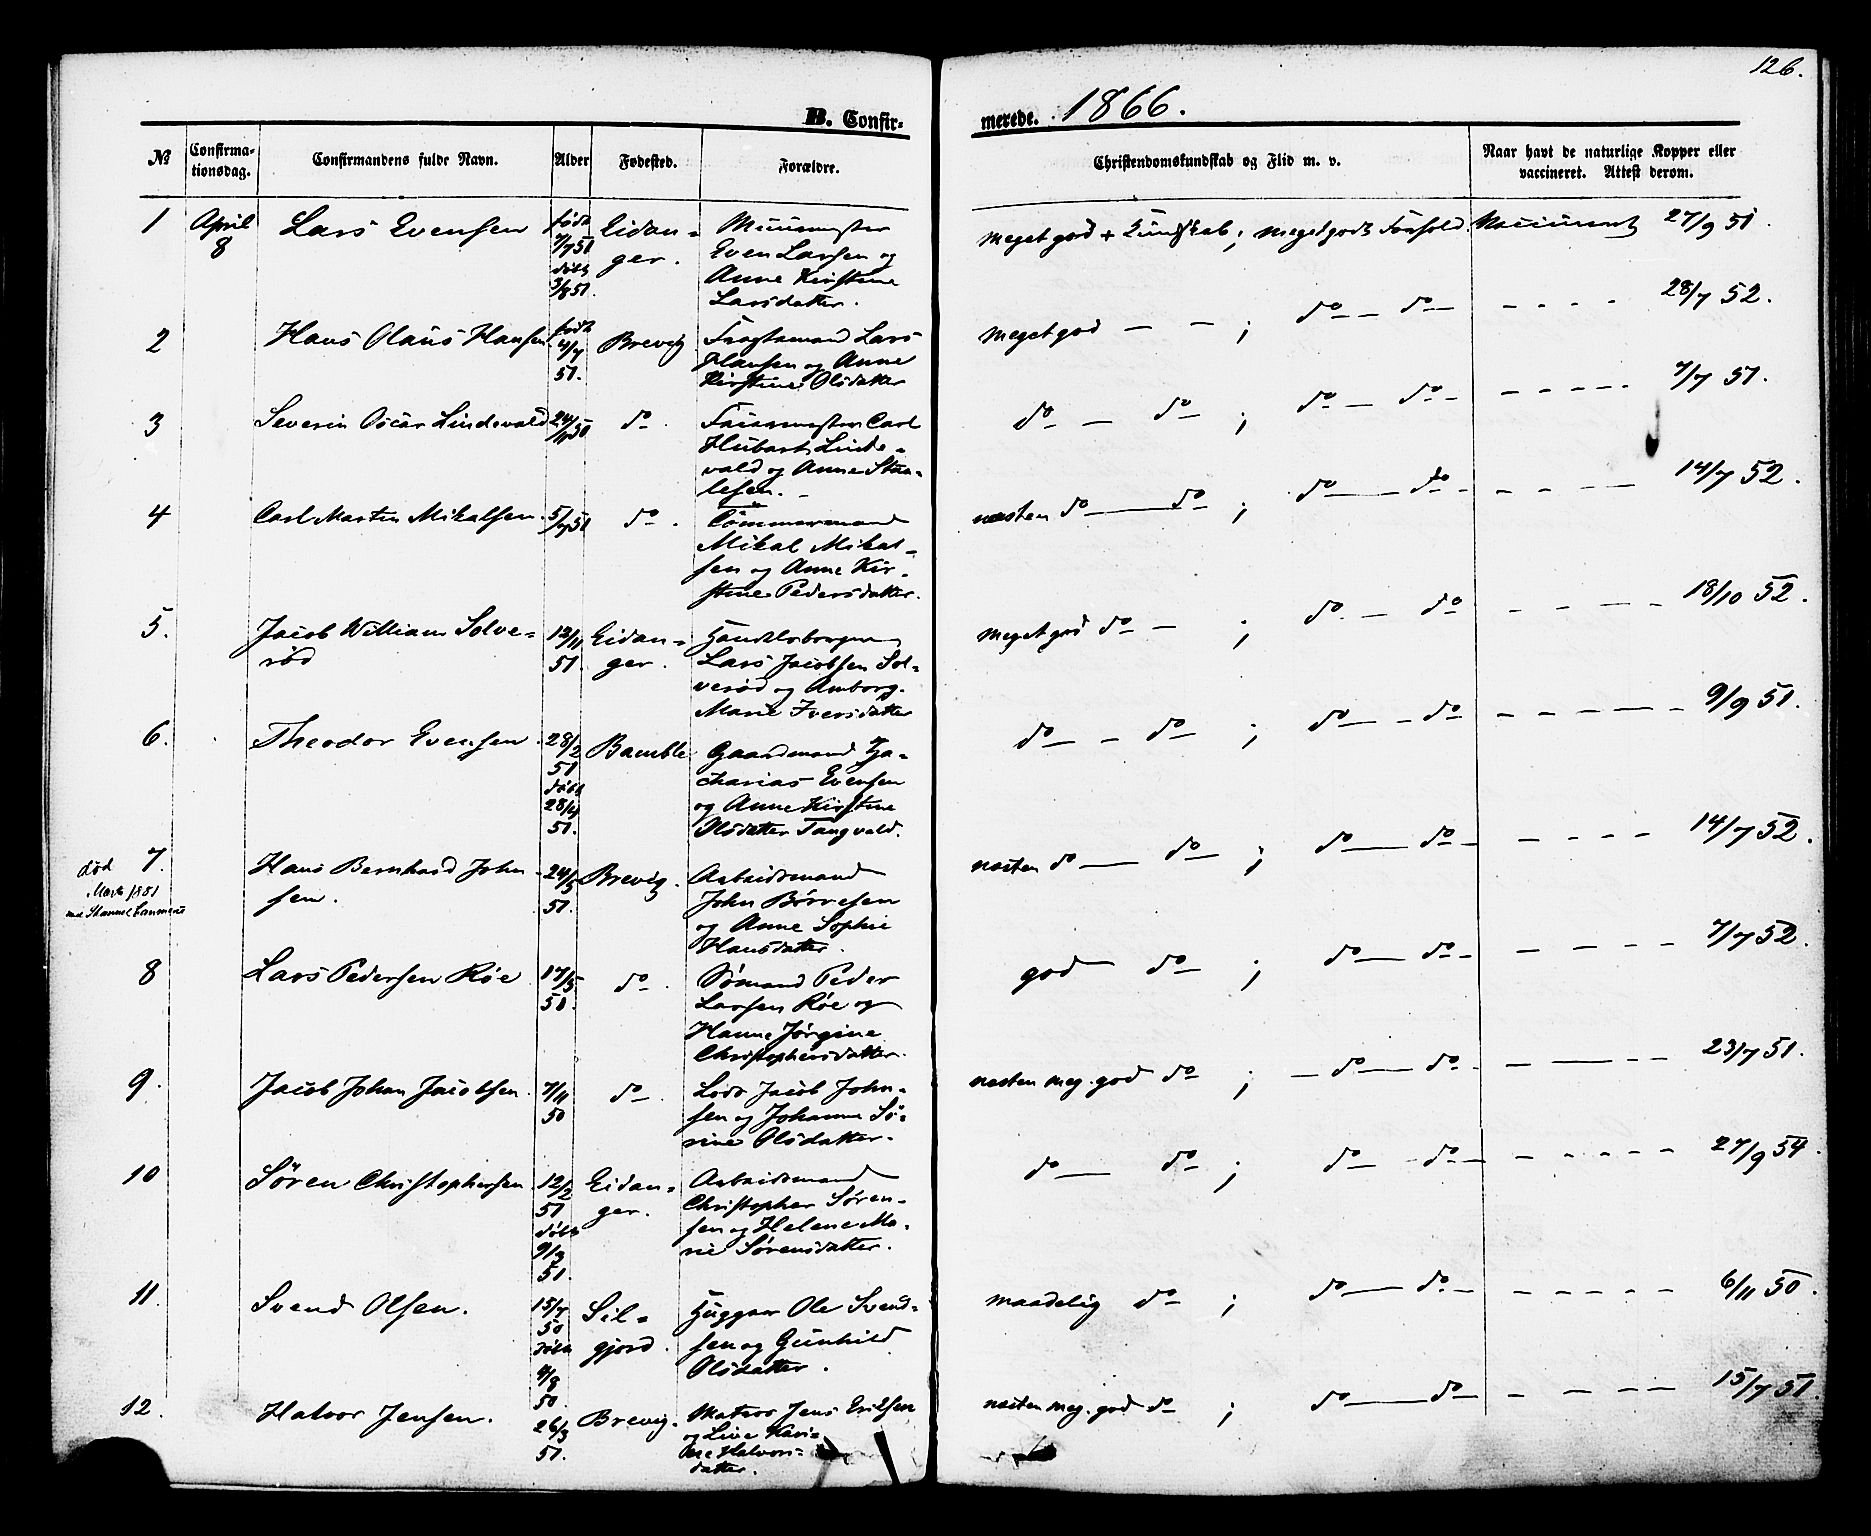 126.
B. Confirmerede. 1866.
№ Confirmationsdag. Confirmandens fulde Navn. Alder Fødested. Forældre. Christendomskundskab og Flid m. v. Naar havt de naturlige Kopper eller vaccineret. Attest derom.
1 April 8 Lars Evensen født 7/7 51 døbt 3/8 51. Eidan-
ger.
Even Larsen og
Anne Kirstine
Larsdatter.
meget god + Kundskab; meget godt Forhold. Vaccineret 27/9 51.
2 Hans Olaus Hansen født 4/7 51. Brevig Fragtemand Lars
Hansen og Anne
Kirstine Olsdatter
meget god — — ; do — do — - - - - 28/7 52.
3 Severin Oscar Lindevald 24/ 50 do Carl
Hubart Linde-
vald og Anne Staa-
lesen. -
do — do ; do — do - - - - - 7/7 51.
4 Carl Martin Mikalsen. 5/7 51 do. Tømmermand
Mikal Mikal-
sen og Anne Kir-
stine Pedersdatter.
næsten do — do ; do — do - - - - 14/7 52.
5. Jacob William Solve-
rød
12/11 51. Eidan-
ger.
Handelsborger
Lars Jacobsen Sol-
verød og Anborg
Marie Iversdatter
meget god do — ; do. — do - - - - 18/10 52.
6. Theodor Evensen 28/2 51 døbt 28/4 51. Bamble Gaardmand Za-
charias Evensen
og Anne Kirstine
Olsdatter Tangvald.
do — do ; do — do - - - - - 9/9 51.
død
Marts 1851
7. Hans Bernhard John-
sen.
24/5 51. Brevig. Arbeidsmand
John Børresen
og Anne Sophie
Hansdatter.
næsten do — do ; do — do - - - - 14/7 52.
8 Lars Pedersen Røe 17/5 51. do. Sømand Peder
Larsen Røe og
Hanne Jørgine
Christophersdatter.
god do ; do — do - - - - 7/7 52.
9. Jacob Johan Jacobsen. 7/11 50 do. Lods Jacob John-
sen og Johanne Sø-
rine Olsdatter.
næsten meg. god do ; — do — do - - - 23/7 51.
10 Søren Christophersen 12/2 51 døbt 9/3 51. Eidan-
ger.
Arbeidsmand
Christopher Søren-
sen og Helene Ma-
rie Sørensdatter.
do — do ; do — do - - - - - 27/9 54.
11. Svend Olsen. 15/7 50 døbt 4/8 50. Sil-
gjord.
Ole Svend-
sen og Gunhild
Olsdatter.
maadelig do ; do — do - - - - - 6/11 50.
12. Halvor Jensen. 26/3 51. Brevig. Matros Jens Eriksen
og Live Kari-
ne Halvors-
datter.
næsten meg. god do ; do — do - - - - 15/7 51.